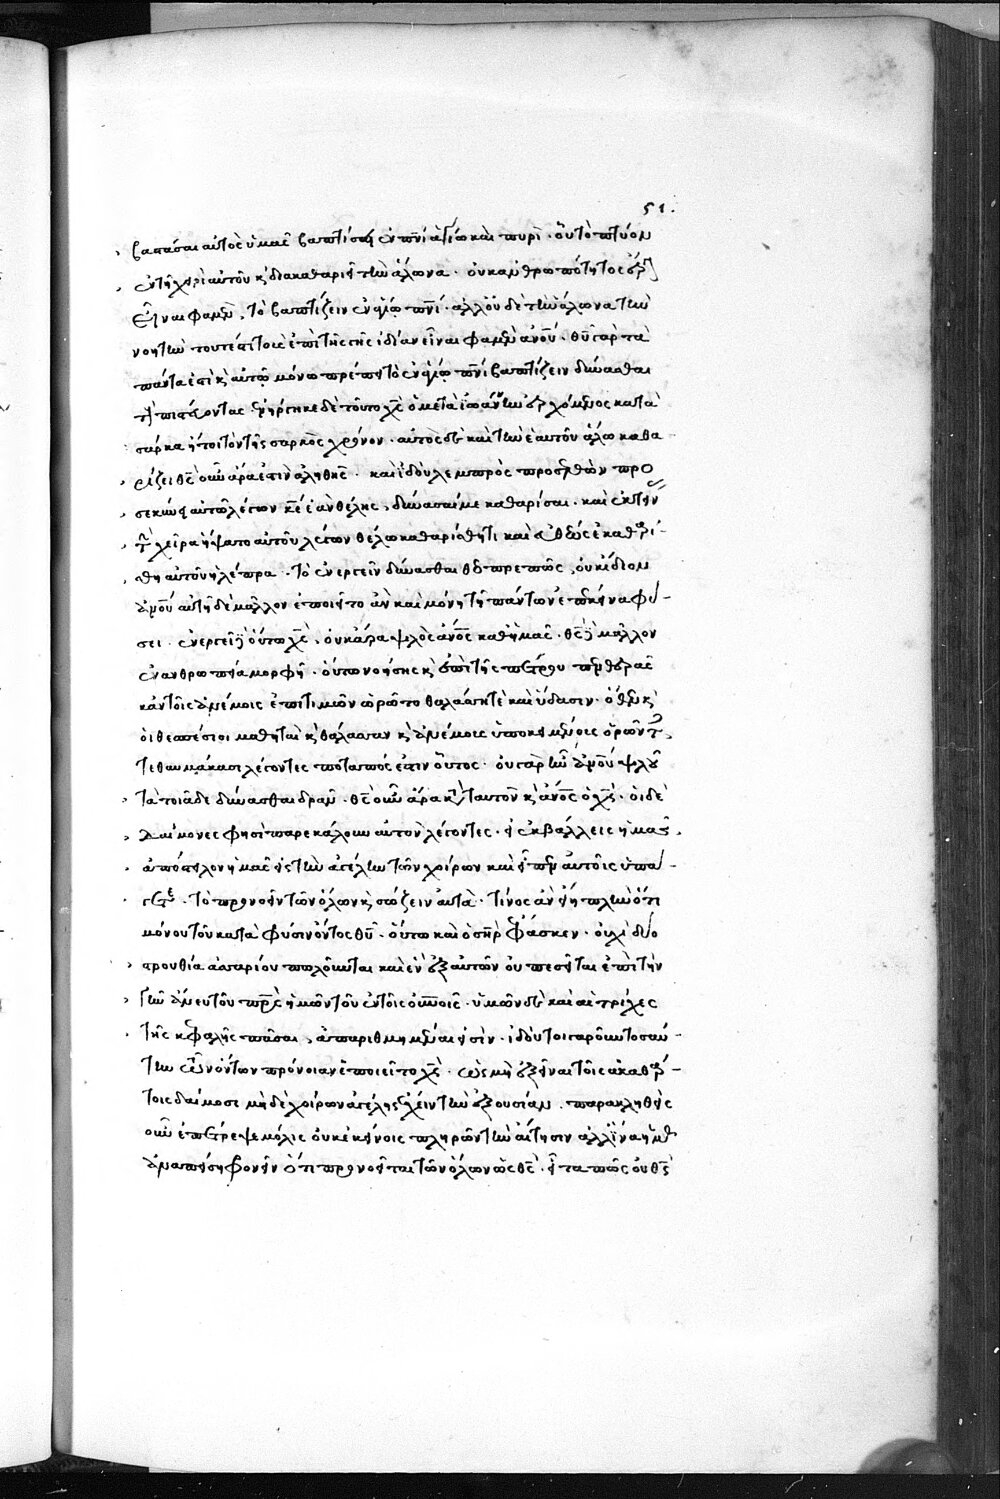 51.
βαστάσαι αὐτὸς ὑμᾶς βαπτίσει ἐν πνι ἁγίω καὶ πυρί · οὗ τὸ πτύον
ἐν τῆ χειρὶ αὐτοῦ κ διακαθαριεῖ τὴν ἅλωνα · οὐκ ἀνθρωπότητος
εἶναι φαμὲν, τὸ βαπτίζειν ἐν ἁγίω πνι · ἀλλ οὐδὲ τὴν ἅλωνα τὴν
νοητὴν τουτέστι τοὺς ἐπὶ τῆς γῆς ἰδίαν εἶναι φαμὲν ἀνου · θυ γὰρ τὰ
πάντα ἐστὶ κ αὐτῶ μόνω πρέποι τὸ ἐν ἁγίω πνι βαπτίζειν δύνασθαι
πιστεύοντας ἐνήργηκε δὲ τοῦτο χς ὁ μετὰ ἰωάννην ἐρχόμενος κατὰ
σάρκα ἤτοι τὸν τῆς σαρκὸς χρόνον · αὐτὸς δὲ καὶ τὴν ἑαυτοῦ ἅλω καθα
ρίζει θς οὖν ἄρα ἐστὶν ἀληθής · καὶ ἰδοὺ λεπρὸς προσελθὼν προ
σεκύνει αὐτῶ λέγων κε ἐὰν θέλης, δύνασαί με καθαρίσαι · καὶ ἐκτείν
χεῖρα ἥψατο αὐτοῦ λέγων θέλω καθαρίσθητι καὶ εὐθέως ἐκαθαρί-
σθη αὐτοῦ ἡ λέπρα · τὸ ἐνεργεῖν δύνασθαι θεοπρεπῶς, οὐκ ἴδιον
ἀνου αὐτῆ δὲ μᾶλλον ἐποιεῖτο ἂν καὶ μόνη τῆ πάντων ἐπέκεινα φύ-
σει · ἐνεργεῖ οὕτω χς, οὐκ ἄρα ψιλὸς ἄνος καθ ἡμᾶς · θς μᾶλλον
ἐν ἀνθρωπεία μορφῆ · οὕτω νοήσης κ ἐπὶ τῆς πέτρου πενθερᾶς
κἀν τοῖς ἀνέμοις ἐπιτιμῶν ὡρᾶτο θαλάσση τε καὶ ὕδασιν · ὅθεν κ
οἱ θεσπέσιοι μαθηταὶ κ θάλασσαν κ ἀνέμους ὑποκειμένους ὁρῶντ
τεθαυμάκασι λέγοντες ποταπός ἐστιν οὗτος · οὐ γὰρ ἦν ἀνου ψιλοῦ
τὰ τοιάδε δύνασθαι δρᾶν · θς οὖν ἄρα κατὰ ταυτὸν κ ἄνος ὁ χς · οἱ δὲ
δαίμονες φησὶ παρεκάλουν αὐτὸν λέγοντες · εἰ ἐκβάλλεις ἡμᾶς,
ἀπόστειλον ἡμᾶς εἰς τὴν ἀγέλην τῶν χοίρων καὶ εἶπεν αὐτοῖς ὑπά-
γετε · τὸ προνοεῖν τῶν ὅλων κ σώζειν αὐτὰ · τίνος ἂν εἴη πλὴν ὅτι
μόνου τοῦ κατὰ φύσιν ὄντος θυ · οὕτω καὶ ὁ σηρ ἔφασκεν · οὐχὶ δύο
στρουθία ἀσσαρίου πωλοῦνται καὶ ἓν ἐξ αὐτῶν οὐ πεσεῖται ἐπὶ τὴν
γῆν ἄνευ τοῦ πρς ἡμῶν τοῦ ἐν τοῖς οὐνοις · ὑμῶν δὲ καὶ αἱ τρίχες
τῆς κεφαλῆς πᾶσαι, ἀπαριθμημέναι εἰσὶν · ἰδοὺ τοιγαροῦν τοσαύ-
την τῶν ὄντων πρόνοιαν ἐποιεῖτο χς · ὡς μὴ ἐξεῖναι τοῖς ἀκαθάρ-
τοις δαίμοσι μηδὲ χοίρων ἀγέλης ἔχειν τὴν ἐξουσίαν · παρακληθεὶς
οὖν ἐπέτρεψε μόλις οὐκ ἐκείνοις πληρῶν τὴν αἴτησιν ἀλλ ἵνα ἡμᾶς
ἀναπείση φρονεῖν ὅτι προνοεῖται τῶν ὅλων ὡς θς · εἶτα πῶς οὐ θς